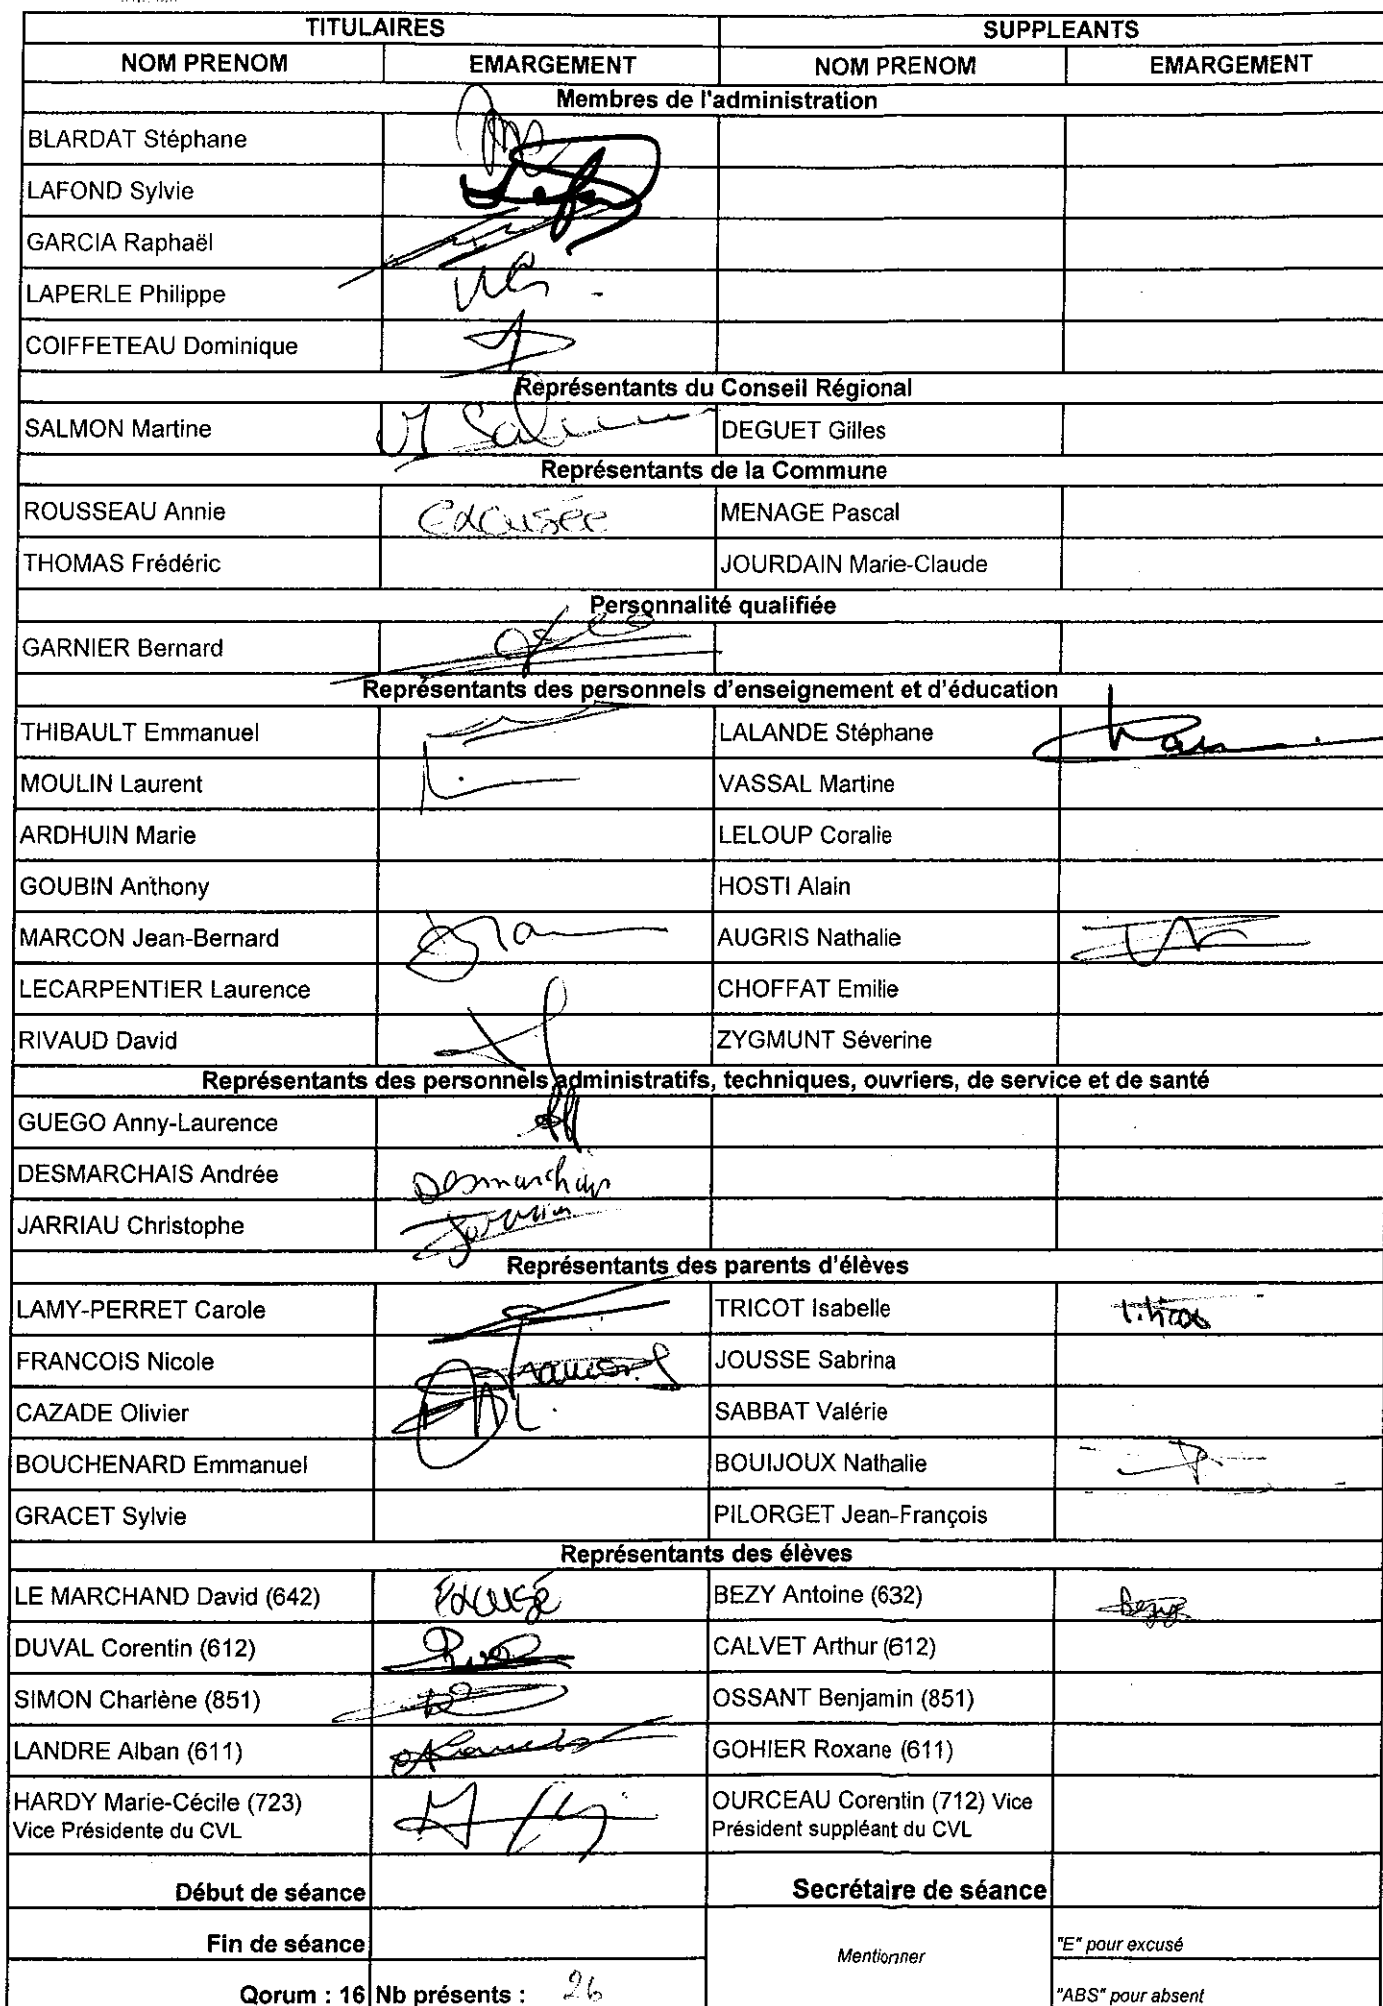 TITULAIRES SUPPLEANTS
NOM PRENOM EMARGEMENT NOM PRENOM EMARGEMENT
Membres de l'administration
BLARDAT Stéphane
LAFOND Sylvie
GARCIA Raphaël
LAPERLE Philippe
COIFFETEAU Dominique
Représentants du Conseil Régional
SALMON Martine M Salmon DEGUET Gilles
Représentants de la Commune
ROUSSEAU Annie excusée MENAGE Pascal
THOMAS Frédéric JOURDAIN Marie-Claude
Personnalité qualifiée
GARNIER Bernard
Représentants des personnels d'enseignement et d'éducation
THIBAULT Emmanuel LALANDE Stéphane
MOULIN Laurent VASSAL Martine
ARDHUIN Marie LELOUP Coralie
GOUBIN Anthony HOSTI Alain
MARCON Jean-Bernard AUGRIS Nathalie
LECARPENTIER Laurence CHOFFAT Emilie
RIVAUD David ZYGMUNT Séverine
Représentants des personnels administratifs, techniques, ouvriers, de service et de santé
GUEGO Anny-Laurence
DESMARCHAIS Andrée Desmarchais
JARRIAU Christophe Jarriau
Représentants des parents d'élèves
LAMY-PERRET Carole TRICOT Isabelle
FRANCOIS Nicole JOUSSE Sabrina
CAZADE Olivier SABBAT Valérie
BOUCHENARD Emmanuel BOUIJOUX Nathalie
GRACET Sylvie PILORGET Jean-François
Représentants des élèves
LE MARCHAND David (642) Excusé BEZY Antoine (632) Bezy
DUVAL Corentin (612) CALVET Arthur (612)
SIMON Charlène (851) OSSANT Benjamin (851)
LANDRE Alban (611) GOHIER Roxane (611)
HARDY Marie-Cécile (723) OURCEAU Corentin (712) Vice
Vice Présidente du CVL Président suppléant du CVL
Début de séance Secrétaire de séance
Fin de séance Mentionner "E" pour excusé
Qorum : 16 Nb présents : 26 "ABS" pour absent